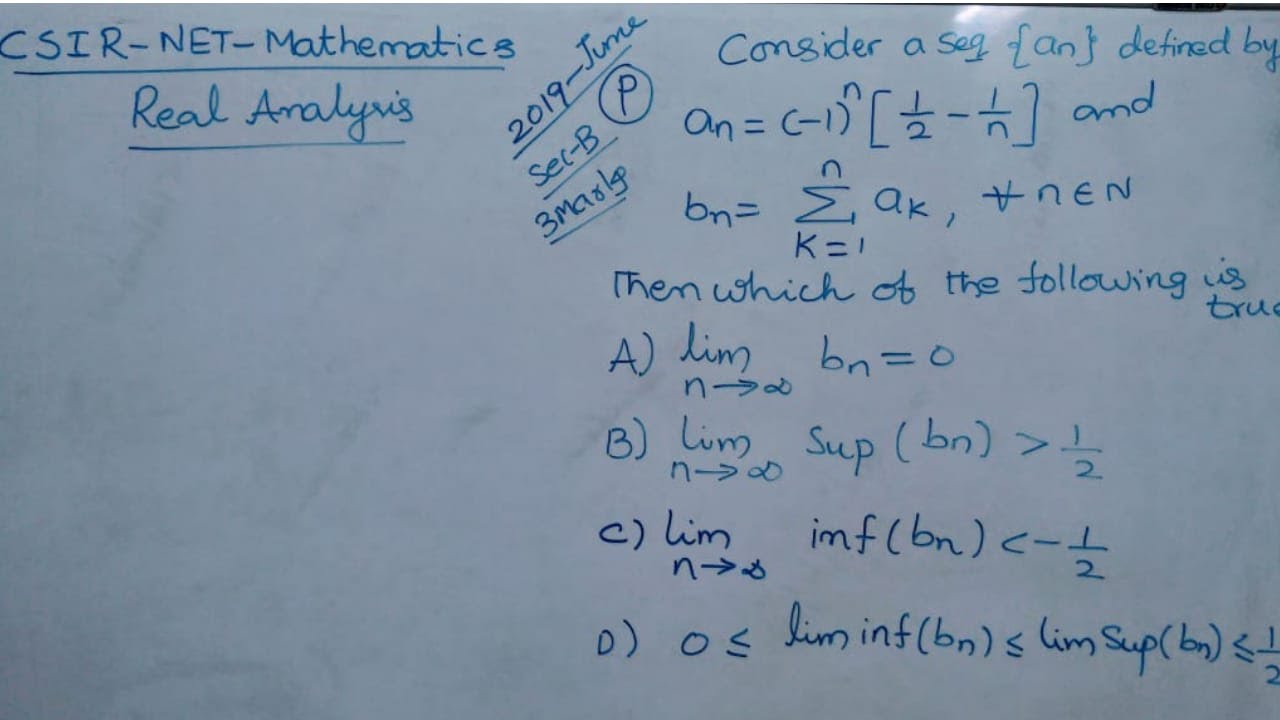 CSIR-NET-Mathematics
Real Analysis
2019-June
Sec-B
3Marks
P
Consider a seq {an} defined by
an = (-1)^n [1/2 - 1/n] and
bn = n Σ K=1 aK, ∀ n ∈ N
Then which of the following is
true
A) lim n→∞ bn = 0
B) lim n→∞ Sup (bn) > 1/2
C) lim n→∞ inf (bn) < -1/2
D) 0 ≤ lim inf (bn) ≤ lim Sup (bn) ≤ 1/2